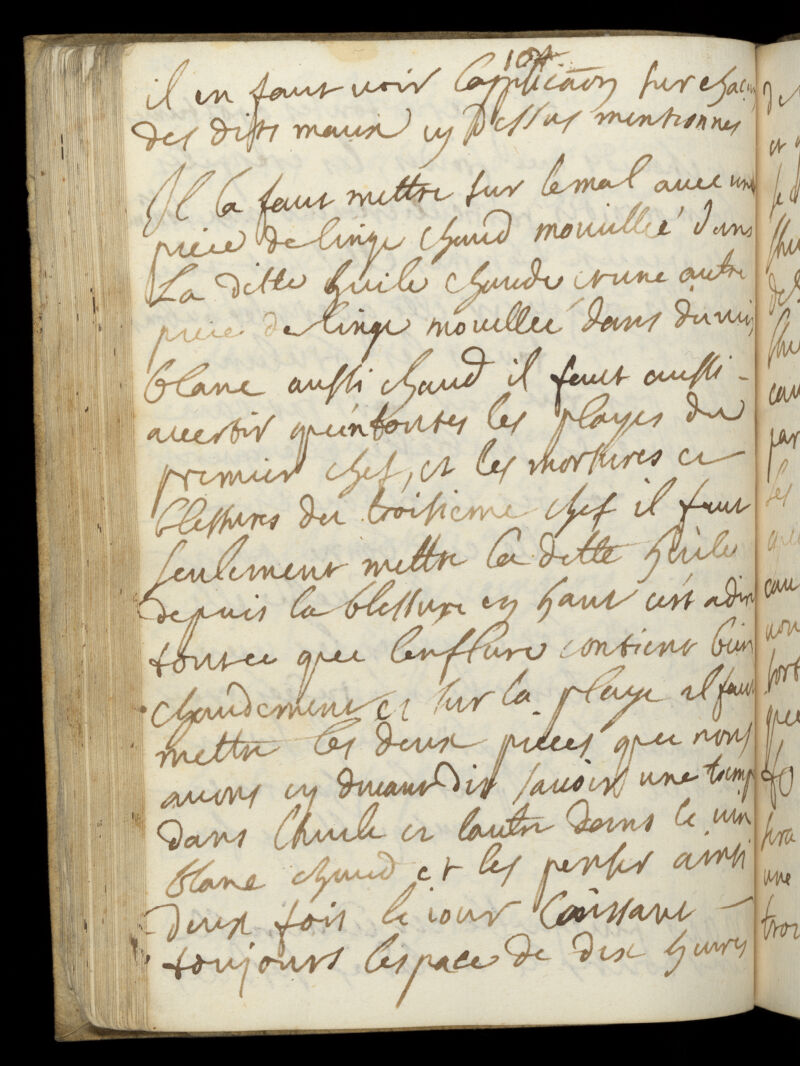 104
il en faut voir l'application sur chacun
des dits maux cy Dessus mentionnes
Il la faut mettre sur le mal avec une
piece de linge chaud mouillee dans
La ditte huile chaude et une autre
piece de linge mouillee dans du vin
blanc aussi chaud il faut aussi -
avertir qu'en toutes les playes du
premier chef, et les morsures et
blessures du troisieme chef il faut
seulement mettre la ditte huile
depuis la blessure en haut c'est a dire
tout ce que l'enflure contient bien
chaudement et sur la playe il faut
mettre les deux pieces que nous
avons cy devant Dit savoir une tremp
dans lhuile et lautre dans le vin
blanc chaud et les penser ainsi
deux fois le iour Laissant -
toujours lespace de dix heures